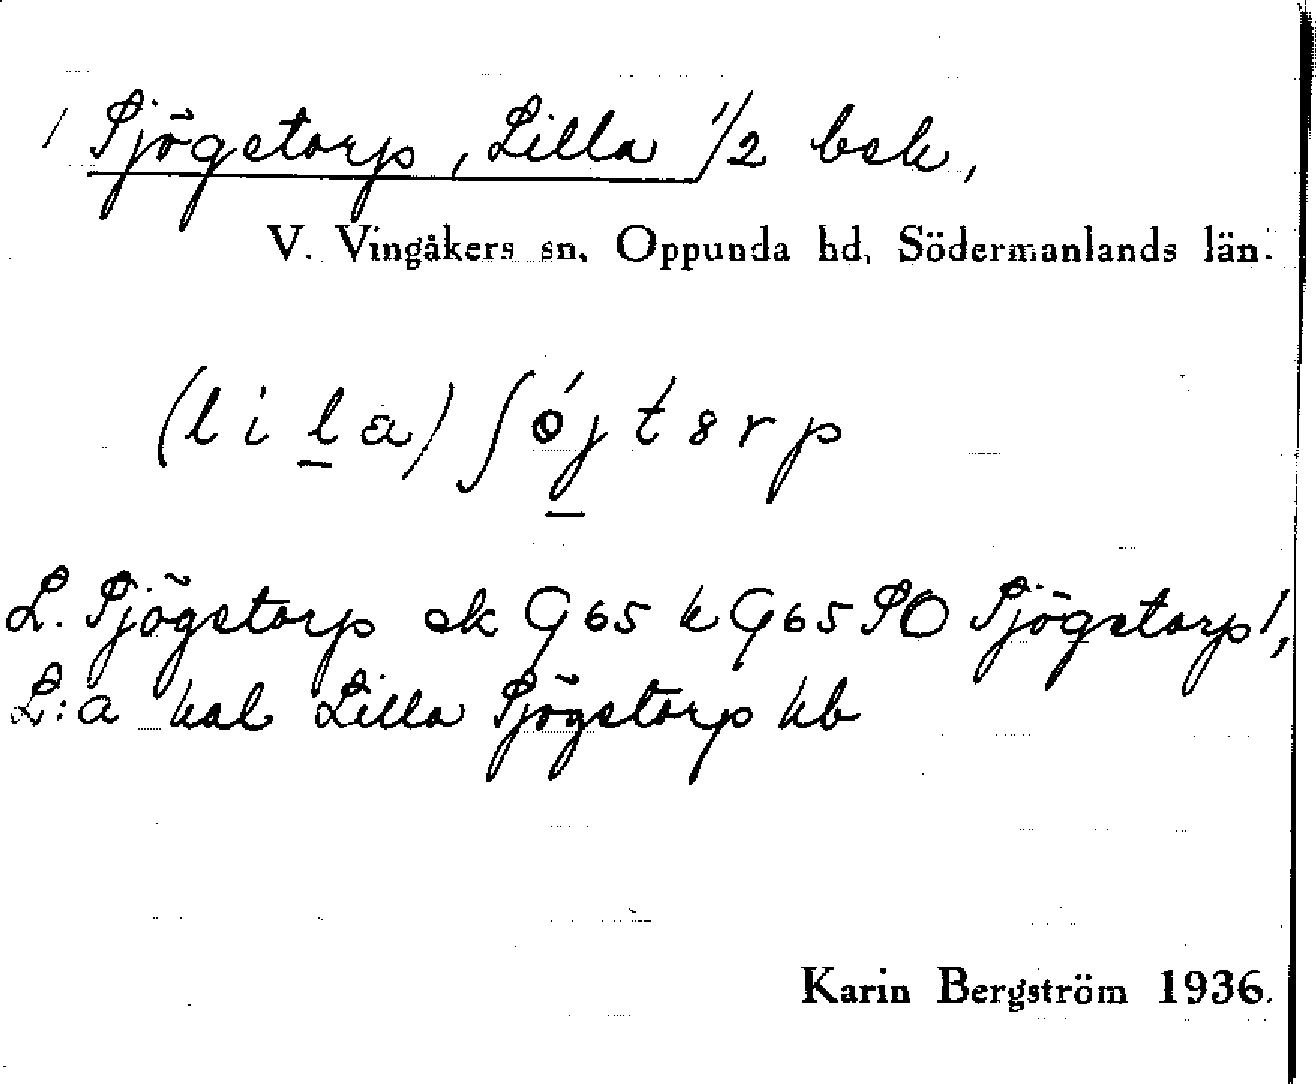 / Sjögetorp, Lilla 1/2 bsk,
V. Vingåkers sn. Oppunda hd, Södermanlands län.
(lila) ʃójtɞrp
L. Sjögstorp ek G65 k G65 SO Sjögstorp!,
L:a kal Lilla Sjögstorp kb
Karin Bergström 1936.